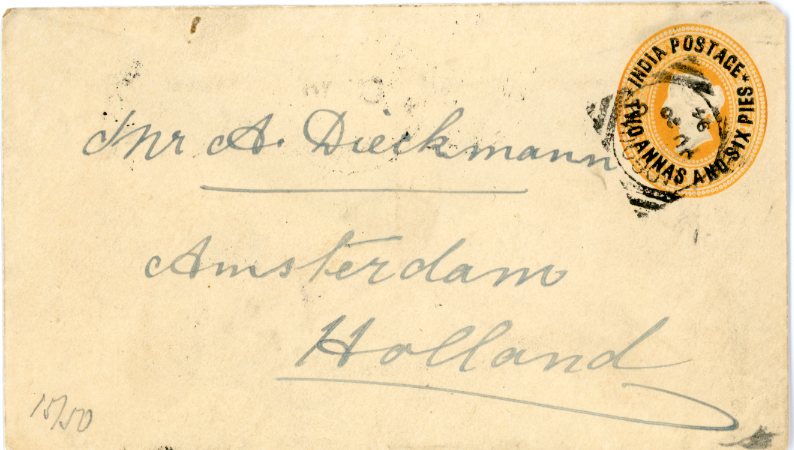 INDIA POSTAGE
TWO ANNAS AND SIX PIES
Mr A. Dieckmann
Amsterdam
Holland
15/50